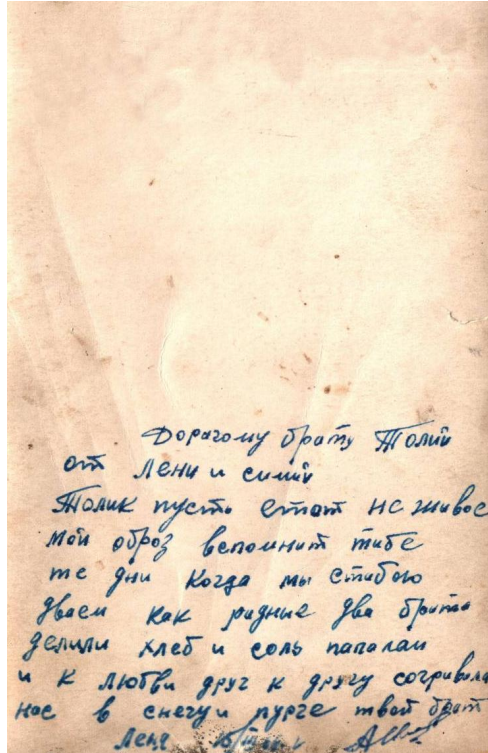 Дорагому брату Толии
от Лени и симии
Толик пусть етат не живое
мои оброз вспомнит тибе
те дни когда мы стибою
дваем как родные два брата
делили хлеб и соль папалам
и к любви друг к другу согривала
нас в снегу и пурге твой брат
Леня